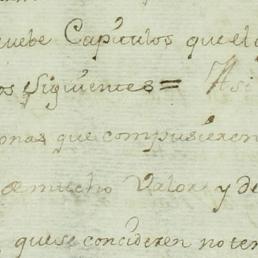 nuebe Capitulos que el
os siguientes = Asi
onas que compusieren
de mucho valor y de
que se concideren no ten